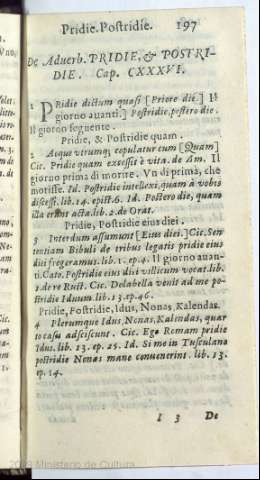 Pridie. Postridie. 197
De Adverb. PRIDIE, & POSTRI-
DIE. Cap. CXXXVI.
1 PRidie dictum quasi [Priore die.] Il
giorno auanti.] Postridie, postero die.
Il giorno seguente.
Pridie, & Postridie quam.
2 Aeque vtrumq; copulatur cum [Quam]
Cic. Pridie quam excessit è vita. de Am. Il
giorno prima di morire. Vn dì prima, che
morisse. Id. Postridie intellexi, quam à vobis
discessi. lib. 14. epist. 6. Id. Postero die, quam
illa erant acta. lib. 2. de Orat.
Pridie, Postridie eius diei.
3 Interdum assumunt [Eius diei.] Cic. Sen
tentiam Bibuli de tribus legatis pridie eius
diei fregeramus. lib. 1. ep. 4. Il giorno auan-
ti. Cato. Postridie eius diei villicum vocat. lib.
1. de re Rust. Cic. Dolabella venit ad me po-
stridie Iduum. lib. 13. ep. 46.
Pridie, Postridie, Idus, Nonas, Kalendas.
4 Plerumque Idus, Nonas, Kalendas, quar
to casu adsciscunt. Cic. Ego Romam pridie
Idus. lib. 23. ep. 25. Id. Si me in Tusculano
postridie Nonas mane conuenerint. lib. 13.
ep. 14.
I 3 De
Ministerio de Cultura